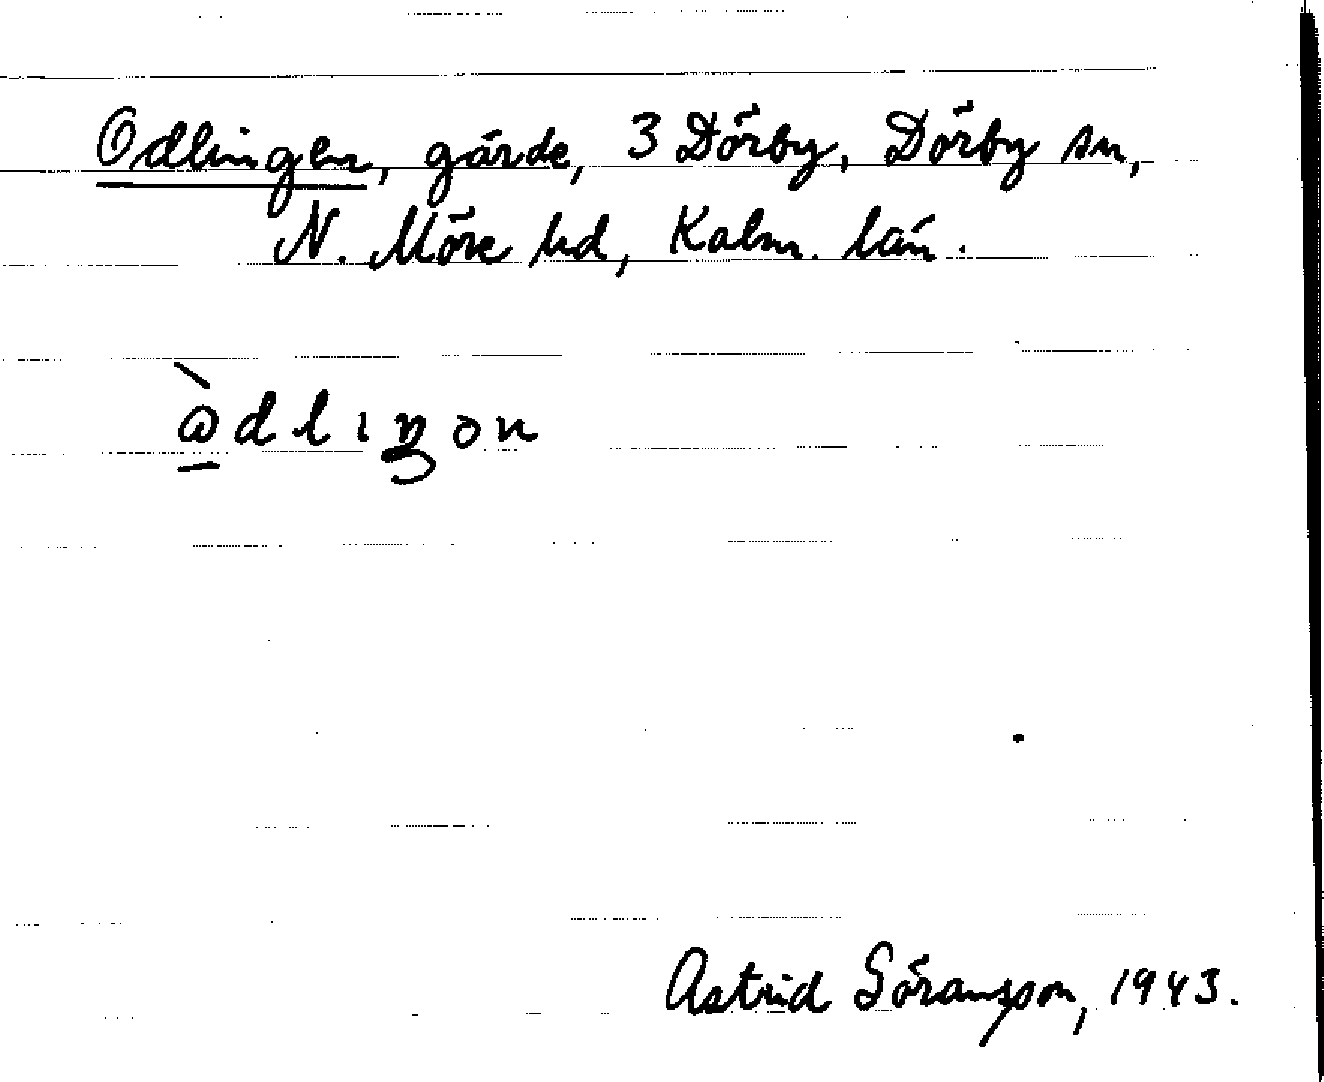 Odlingen, gärde, 3 Dörby, Dörby sn,
N. Möre hd, Kalm. län.
Astrid Göransson, 1943.